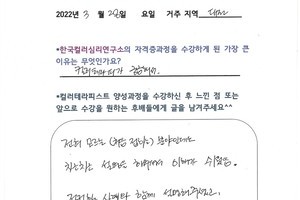 2022년 3월 2일 요일 거주 지역 대전
•한국컬러심리연구소의 자격증과정을 수강하게 된 가장 큰
이유는 무엇인가요?
컬러테라피가 궁금해서.
•컬러테라피스트 양성과정을 수강하신 후 느낀 점 또는
앞으로 수강을 원하는 후배들에게 글을 남겨주세요^^
전혀 모르는 (처음 접하는) 분야인데도
차근차근 설명을 해주셔서 이해가 쉬웠음.
함께 설명해주시고,